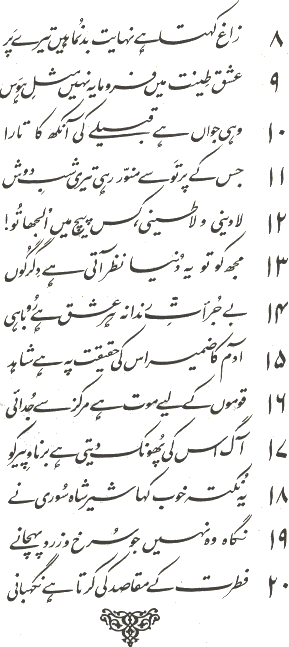 ۸ زاغ کہتا ہے نہایت بدنما ہیں تیرے پر
۹ عشق طینت میں فرومایہ نہیں مثل ہوس
۱۰ وہی جواں ہے قبیلے کی آنکھ کا تارا
۱۱ جس کے پرتو سے منور رہی تیری شب دوش
۱۲ لادینی و لاطینی، کس پیچ میں الجھا تو!
۱۳ مجھ کو تو یہ دنیا نظر آتی ہے دگرگوں
۱۴ بے جرأت رندانہ ہر عشق ہے روباہی
۱۵ آدم کا ضمیر اس کی حقیقت پہ ہے شاہد
۱۶ قوموں کے لیے موت ہے مرکز سے جدائی
۱۷ آگ اس کی پھونک دیتی ہے برنا و پیر کو
۱۸ یہ نکتہ خوب کہا شیر شاہ سوری نے
۱۹ نگاہ وہ نہیں جو سرخ و زرد پہچانے
۲۰ فطرت کے مقاصد کی کرتا ہے نگہبانی